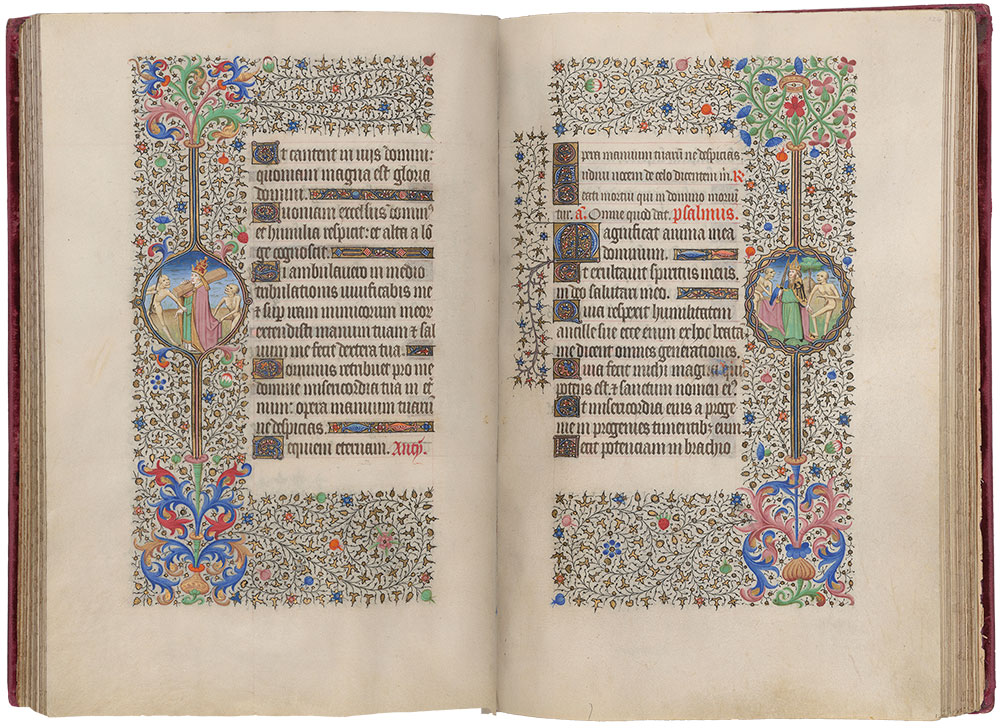 Et cantent in viis domini:
quoniam magna est gloria
domini.
Quoniam excelsus domin⁹
et humilia respicit: et alta a lō
ge cognoscit.
Si ambulavero in medio
tribulationis vivificabis me
& sup iram inimicorum meor
extendisti manum tuam & sal
vum me fecit dextera tua.
Dominus retribuet pro me
domine misericordia tua in et
num: opera manuum tuarum
ne despicias.
Requiem eternam.
Opera manuum tuarū ne despicias
Audivi vocem de celo dicentem m. R
Beati mortui qui in domino moriun
tur. a. Omne quod dat. psalmus.
Magnificat anima mea
dominum.
Et exultavit spiritus meus
in deo salutari meo.
Quia respexit humilitatem
ancille sue ecce enim ex hoc beata
me dicent omnes generationes.
Quia fecit michi magna qui
potens est & sanctum nomen ei⁹
Et misericordia eius a proge
nie in progenies timentib⁹ eum
Fecit potenciam in brachio